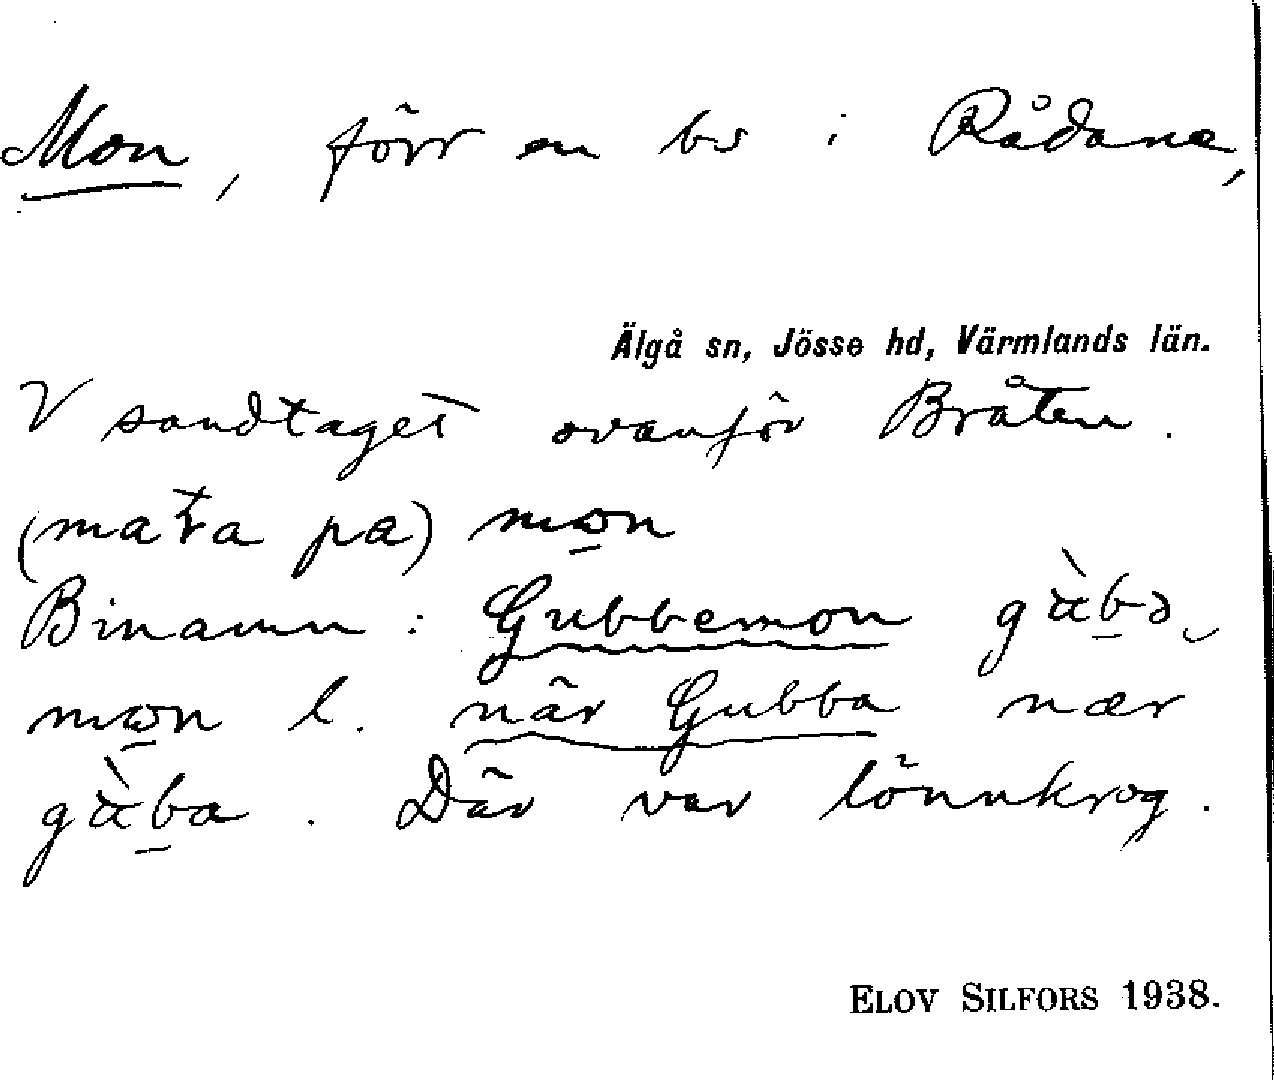 Mon, förr en bs i Rådane,
Älgå sn, Jösse hd, Värmlands län.
V sandtaget ovanför Bråten.
(mat̄a pa) mo̠n
Binamn: Gubbemon gὰb̠ə‿
mo̠n l. när Gubba nær
gὰb̠a. Där var lönnkrog.
ELOV SILFORS 1938.